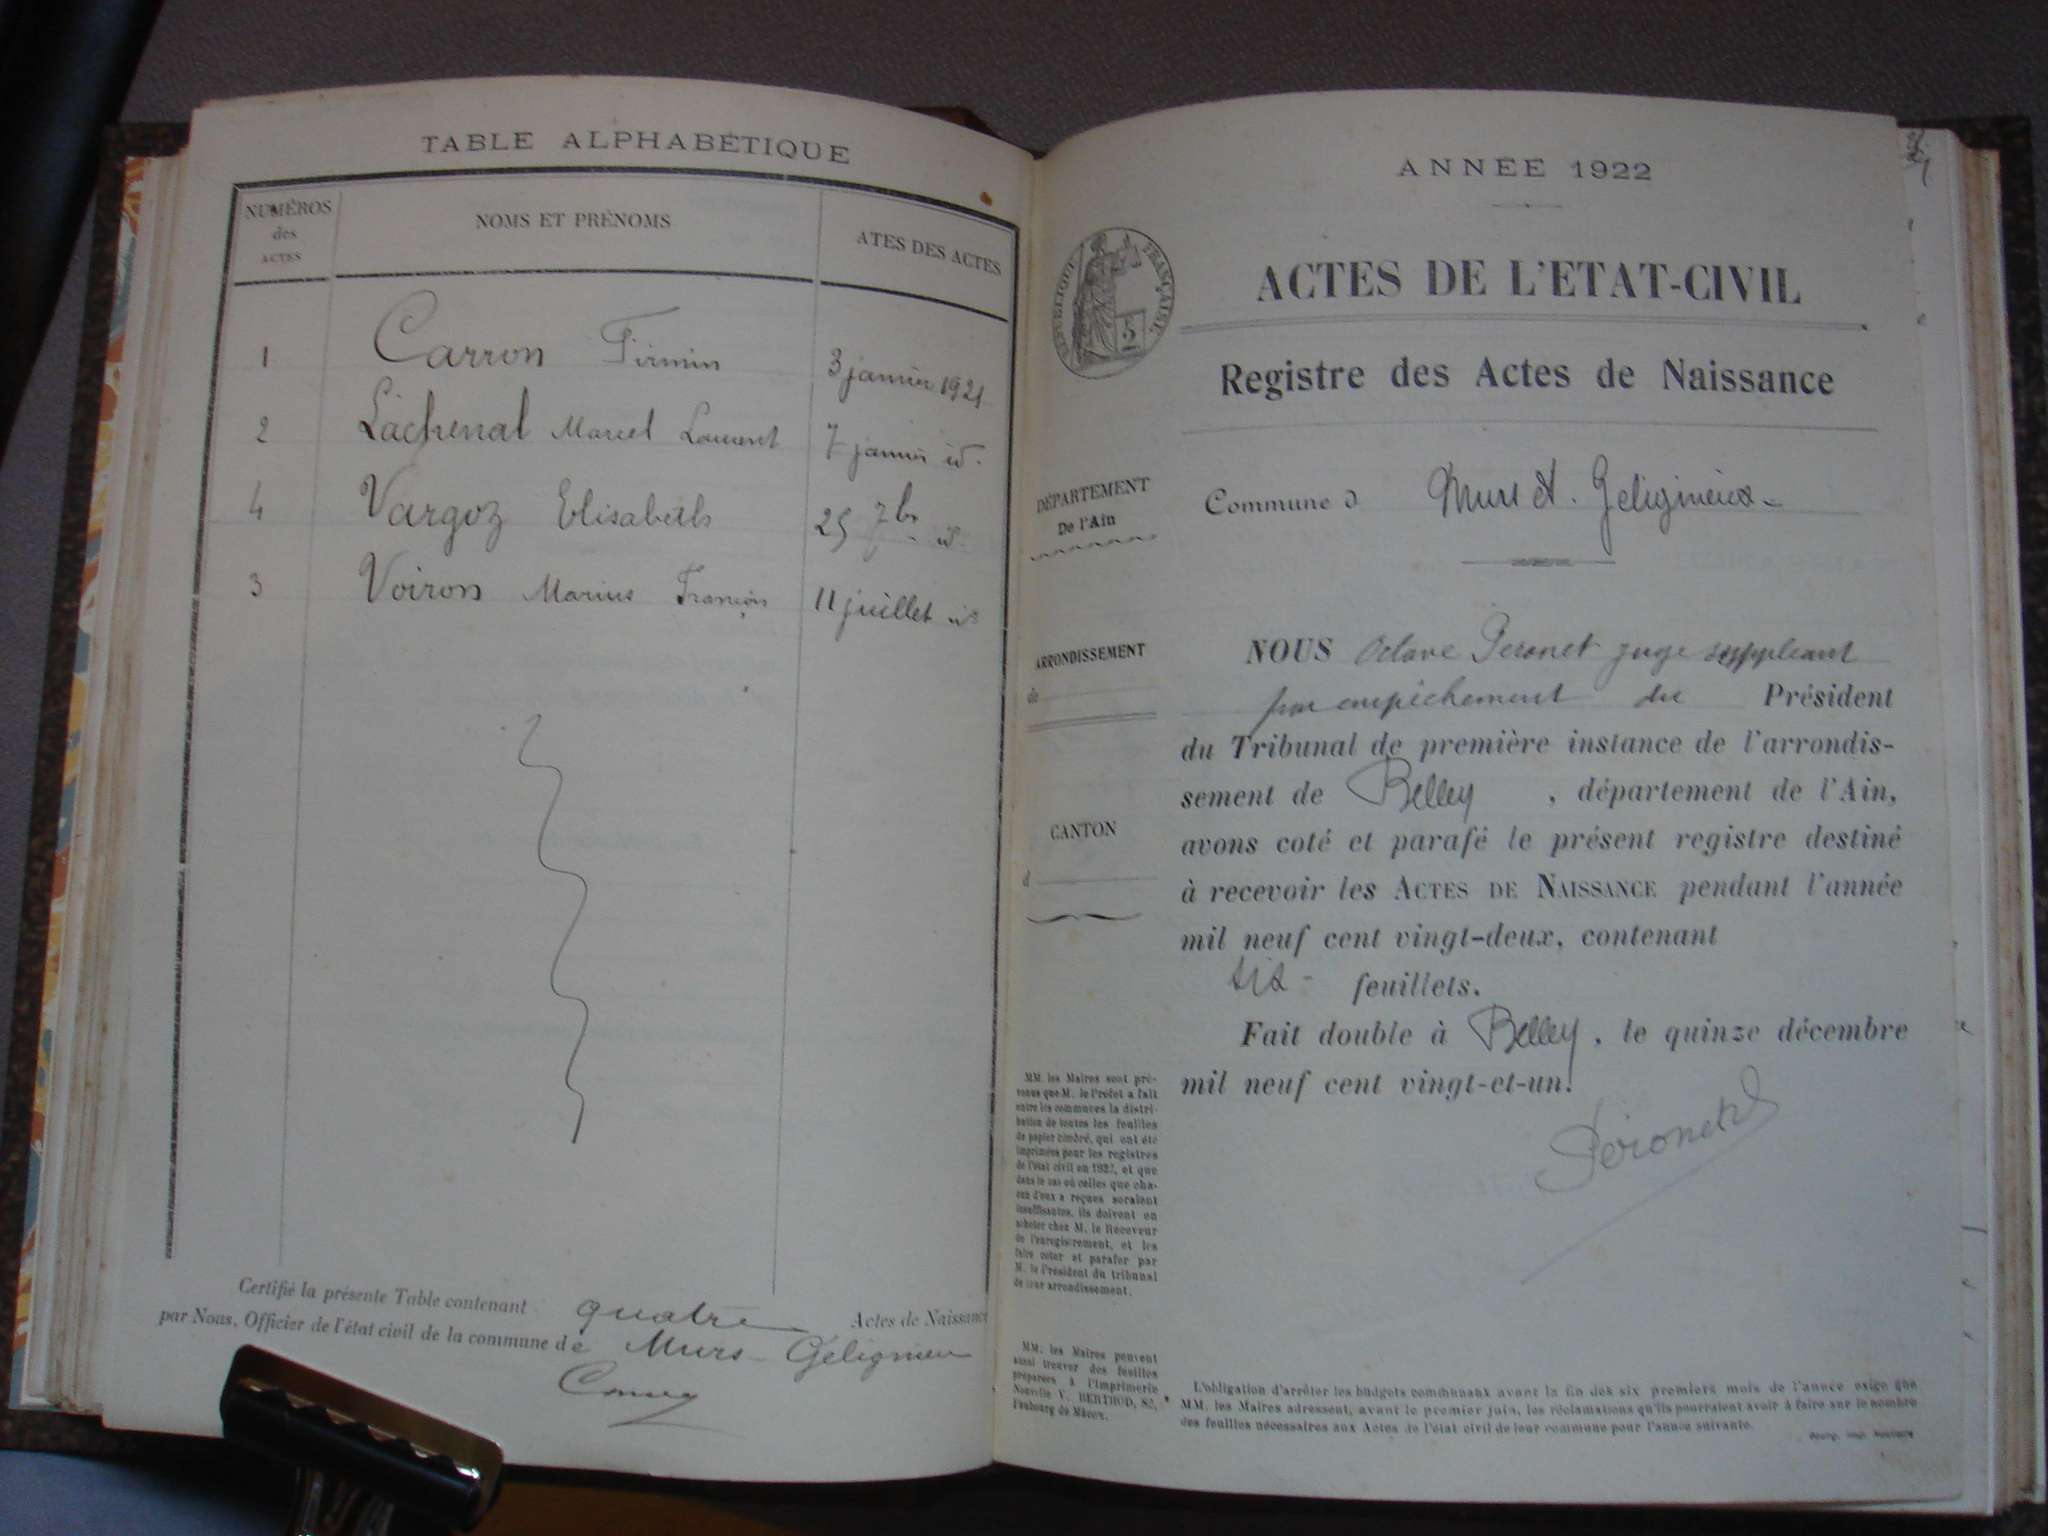 TABLE ALPHABÉTIQUE
NUMÉROS
des
ACTES
NOMS ET PRÉNOMS
ATES DES ACTES
1 Carron Firmin 3 janvier 1921
2 Lachenal Marcel Laurent 7 janvier id.
4 Vargoz Elisabeth 25 7bre id.
3 Voiron Marius François 11 juillet id
Certifié la présente Table contenant quatre Actes de Naissance
par Nous, Officier de l'état civil de la commune de Murs-Gélignieu
ANNÉE 1922
RÉPUBLIQUE FRANÇAISE
5
ACTES DE L'ETAT-CIVIL
Registre des Actes de Naissance
DÉPARTEMENT
De l'Ain
Commune d Murs et Gelignieux
ARRONDISSEMENT
de
CANTON
d
NOUS Octave Peronet juge suppléant
par empêchement du Président
du Tribunal de première instance de l'arrondis-
sement de Belley, département de l'Ain,
avons coté et parafé le présent registre destiné
à recevoir les ACTES DE NAISSANCE pendant l'année
mil neuf cent vingt-deux, contenant
six feuillets.
Fait double à Belley, le quinze décembre
mil neuf cent vingt-et-un.
Peronet
MM. les Maires sont pré-
venus que M. le Préfet a fait
entre les communes la distri-
bution de toutes les feuilles
de papier timbré, qui ont été
imprimées pour les registres
de l'état civil en 1922, et que
dans le cas où celles que cha-
cun d'eux a reçues seraient
insuffisantes, ils doivent en
acheter chez M. le Receveur
de l'enregistrement, et les
faire coter et parafer par
M. le Président du tribunal
de leur arrondissement.
MM. les Maires peuvent
aussi trouver des feuilles
préparées à l'Imprimerie
Nouvelle V. BERTHOD, 82,
Faubourg de Mâcon.
L'obligation d'arrêter les budgets communaux avant la fin des six premiers mois de l'année exige que
MM. les Maires adressent, avant le premier juin, les réclamations qu'ils pourraient avoir à faire sur le nombre
des feuilles nécessaires aux Actes de l'état civil de leur commune pour l'année suivante.
Bourg, Imp. Nouvelle